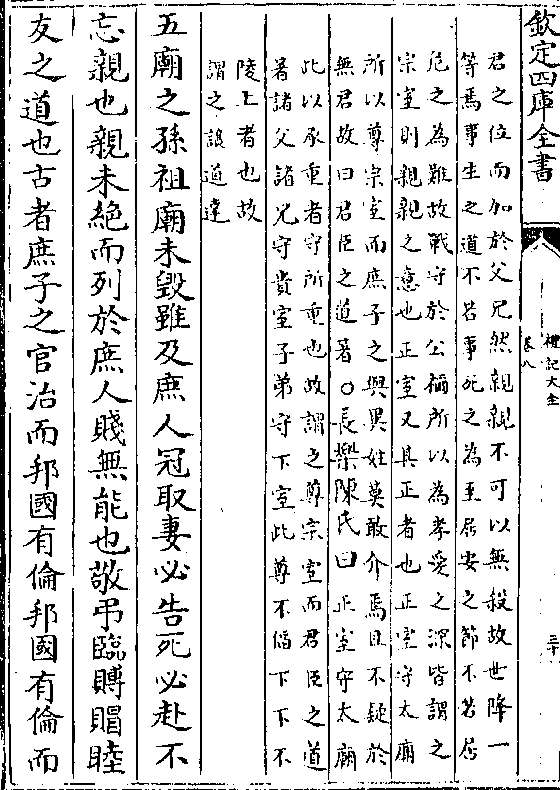 欽定四庫全書
禮記大全
卷八
三十
君之位而加於父兄然親親不可以無殺故世降一
等焉事生之道不若事死之為重居安之節不若居
危之為難故戰守於公禰所以為孝愛之深皆謂之
宗室則親親之意也正室又其正者也正室守太廟
所以尊宗室而庶子之與異姓莫敢介焉且不疑於
無君故曰君臣之道著○長樂陳氏曰正室守太廟
此以承重者守所重也故謂之尊宗室而君臣之道
著諸父諸兄守貴室子弟守下室此尊不偪下下不
陵上者也故
謂之讓道達
五廟之孫祖廟未毀雖及庶人冠取妻必告死必赴不
忘親也親未絶而列於庶人賤無能也敬弔臨賻賵睦
友之道也古者庶子之官治而邦國有倫邦國有倫而